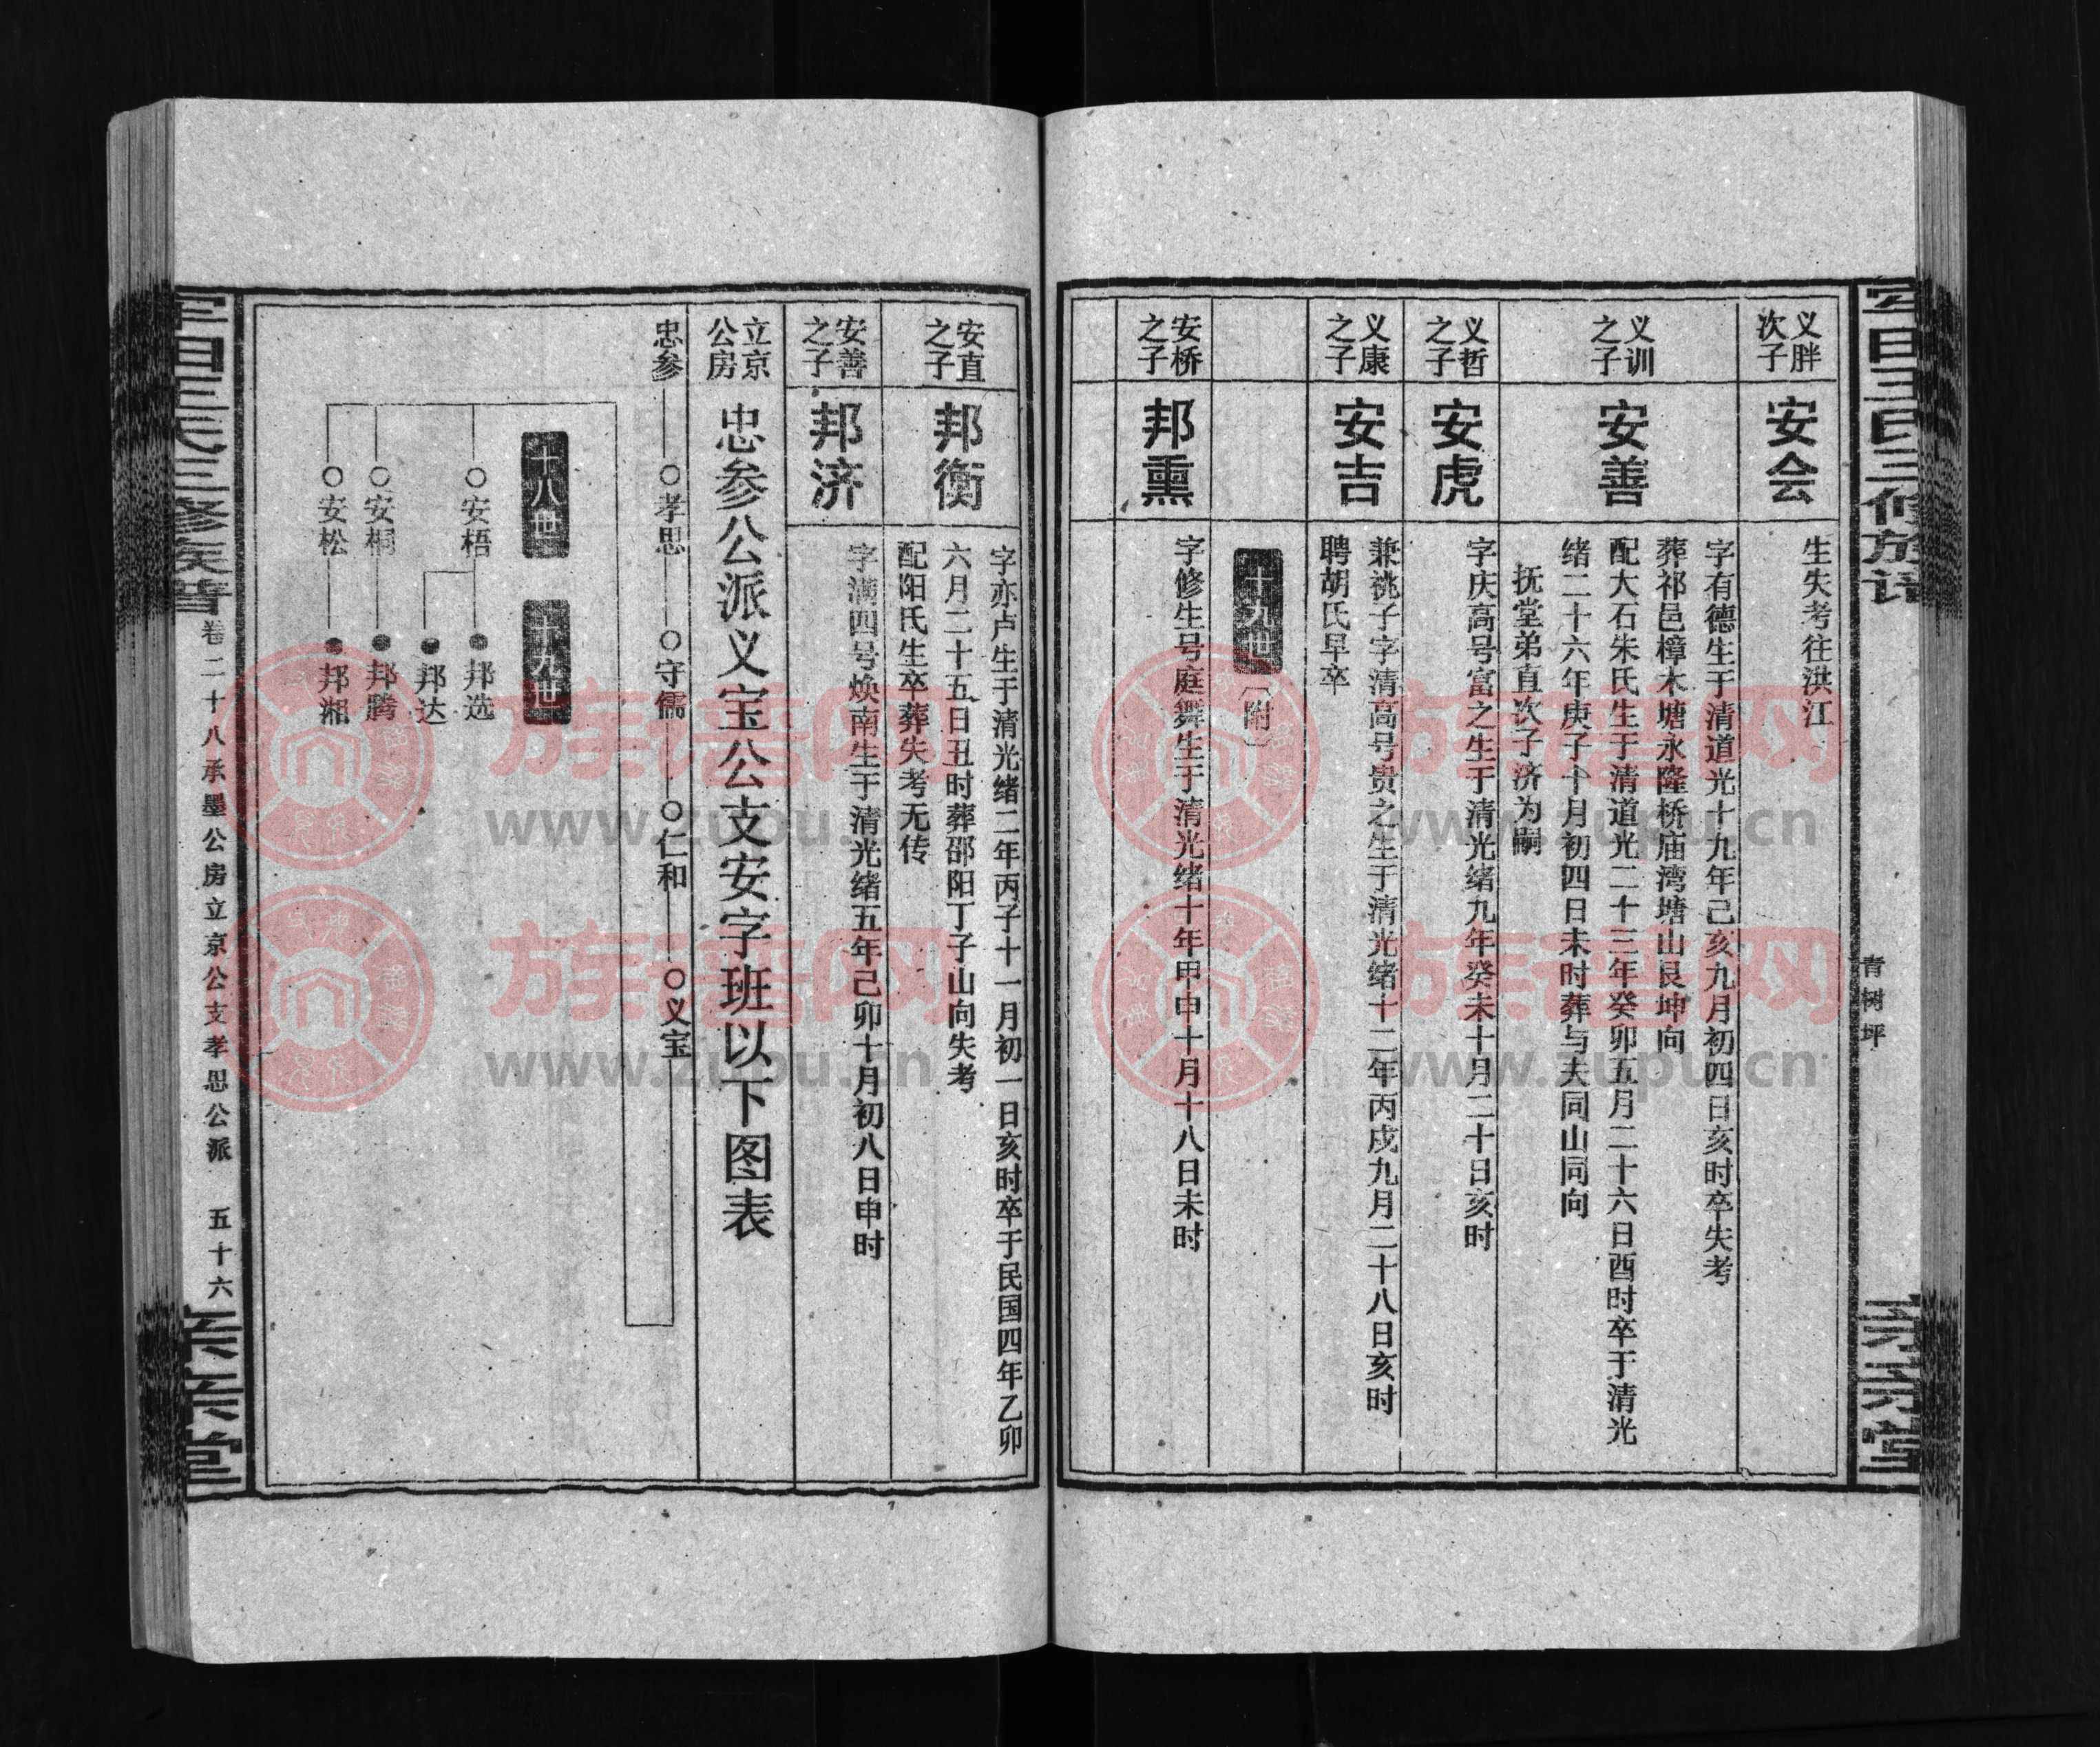 青树坪
义胖次子
安会
生失考往洪江
义训之子
安善
字有德生于清道光十九年己亥九月初四日亥时卒失考
葬祁邑樟木塘永隆桥庙湾塘山艮坤向
配大石朱氏生于清道光二十三年癸卯五月二十六日酉时卒于清光
绪二十六年庚子十月初四日未时葬与夫同山同向
抚堂弟直次子济为嗣
义哲之子
安虎
字庆高号富之生于清光绪九年癸未十月二十日亥时
义康之子
安吉
兼祧子字清高号贵之生于清光绪十二年丙戌九月二十八日亥时
聘胡氏早卒
十九世〔附〕
安桥之子
邦熏
字修生号庭舞生于清光绪十年甲申十月十八日未时
安直之子
邦衡
字亦卢生于清光绪二年丙子十一月初一日亥时卒于民国四年乙卯
六月二十五日丑时葬邵阳丁子山向失考
配阳氏生卒葬失考无传
安善之子
邦济
字满四号焕南生于清光绪五年己卯十月初八日申时
立京公房
忠参公派义宝公支安字班以下图表
忠参 孝思 守儒 仁和 义宝
十八世 十九世
安梧 邦选
邦达
安桐 邦腾
安松 邦湘
王氏三修族谱
卷二十八承墨公房立京公支孝思公派 五十六
族谱网
www.zupu.cn
族谱网
www.zupu.cn
族谱网
www.zupu.cn
族谱网
www.zupu.cn